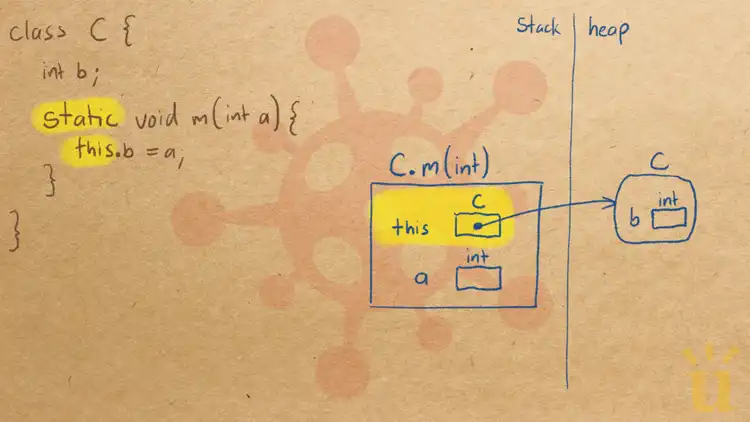 class C {
int b;
static void m(int a) {
this.b = a;
}
}
Stack heap
C.m(int)
C
this
int
a
C
int
b
u